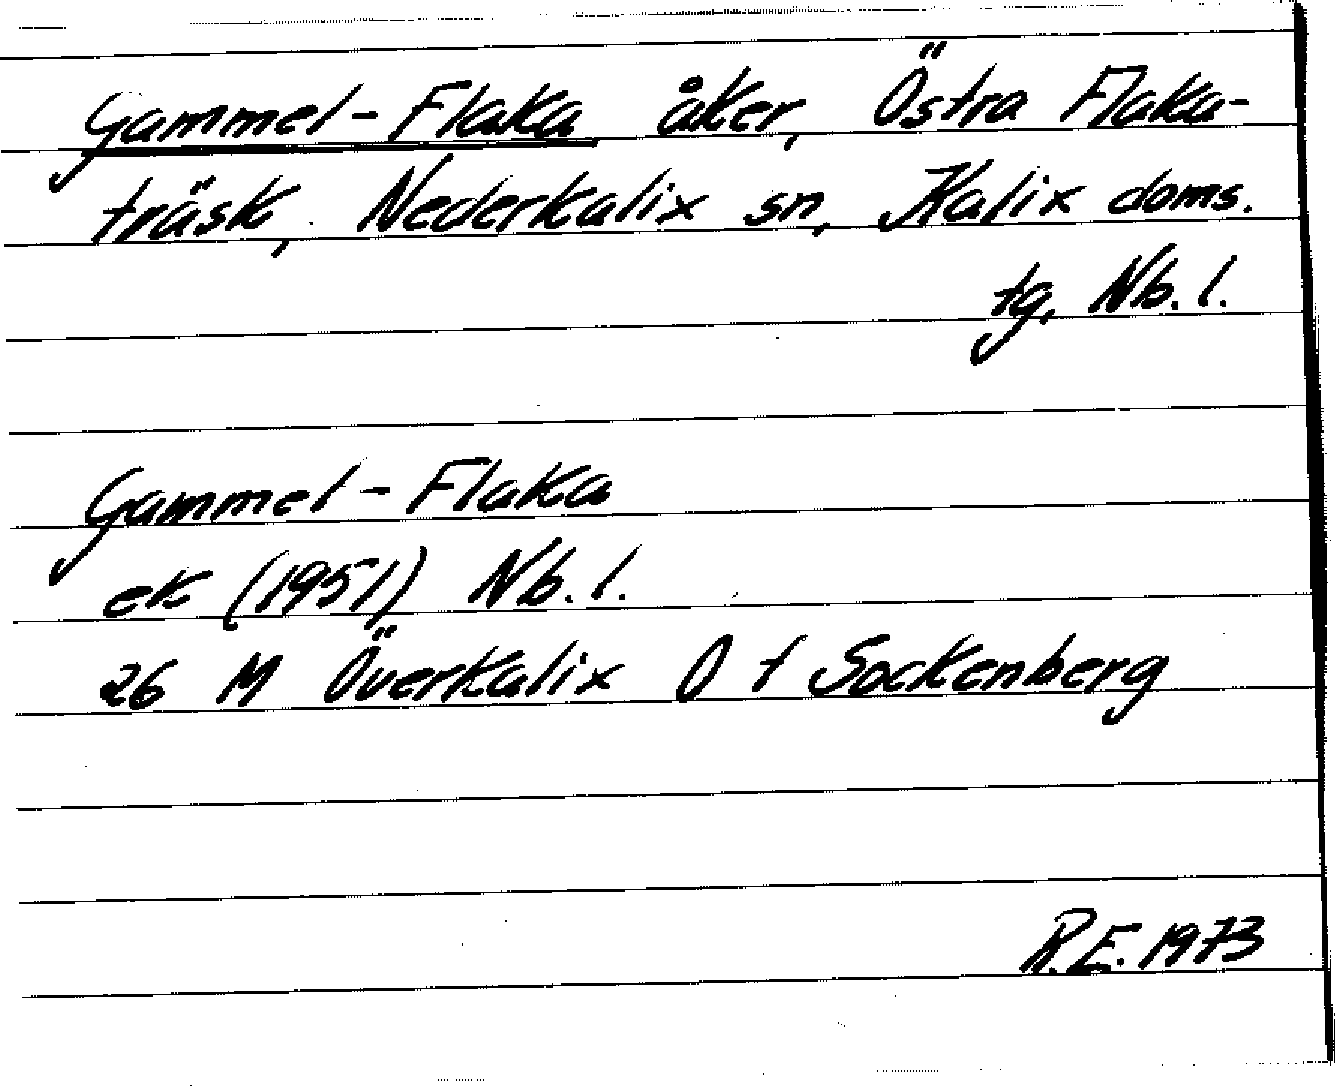 Gammel-Flaka åker, Östra Flaka-
träsk, Nederkalix sn, Kalix doms.
tg, Nb. l.
Gammel-Flaka
ek (1951) Nb. l.
26 M Överkalix O t Sockenberg
R.E. 1973